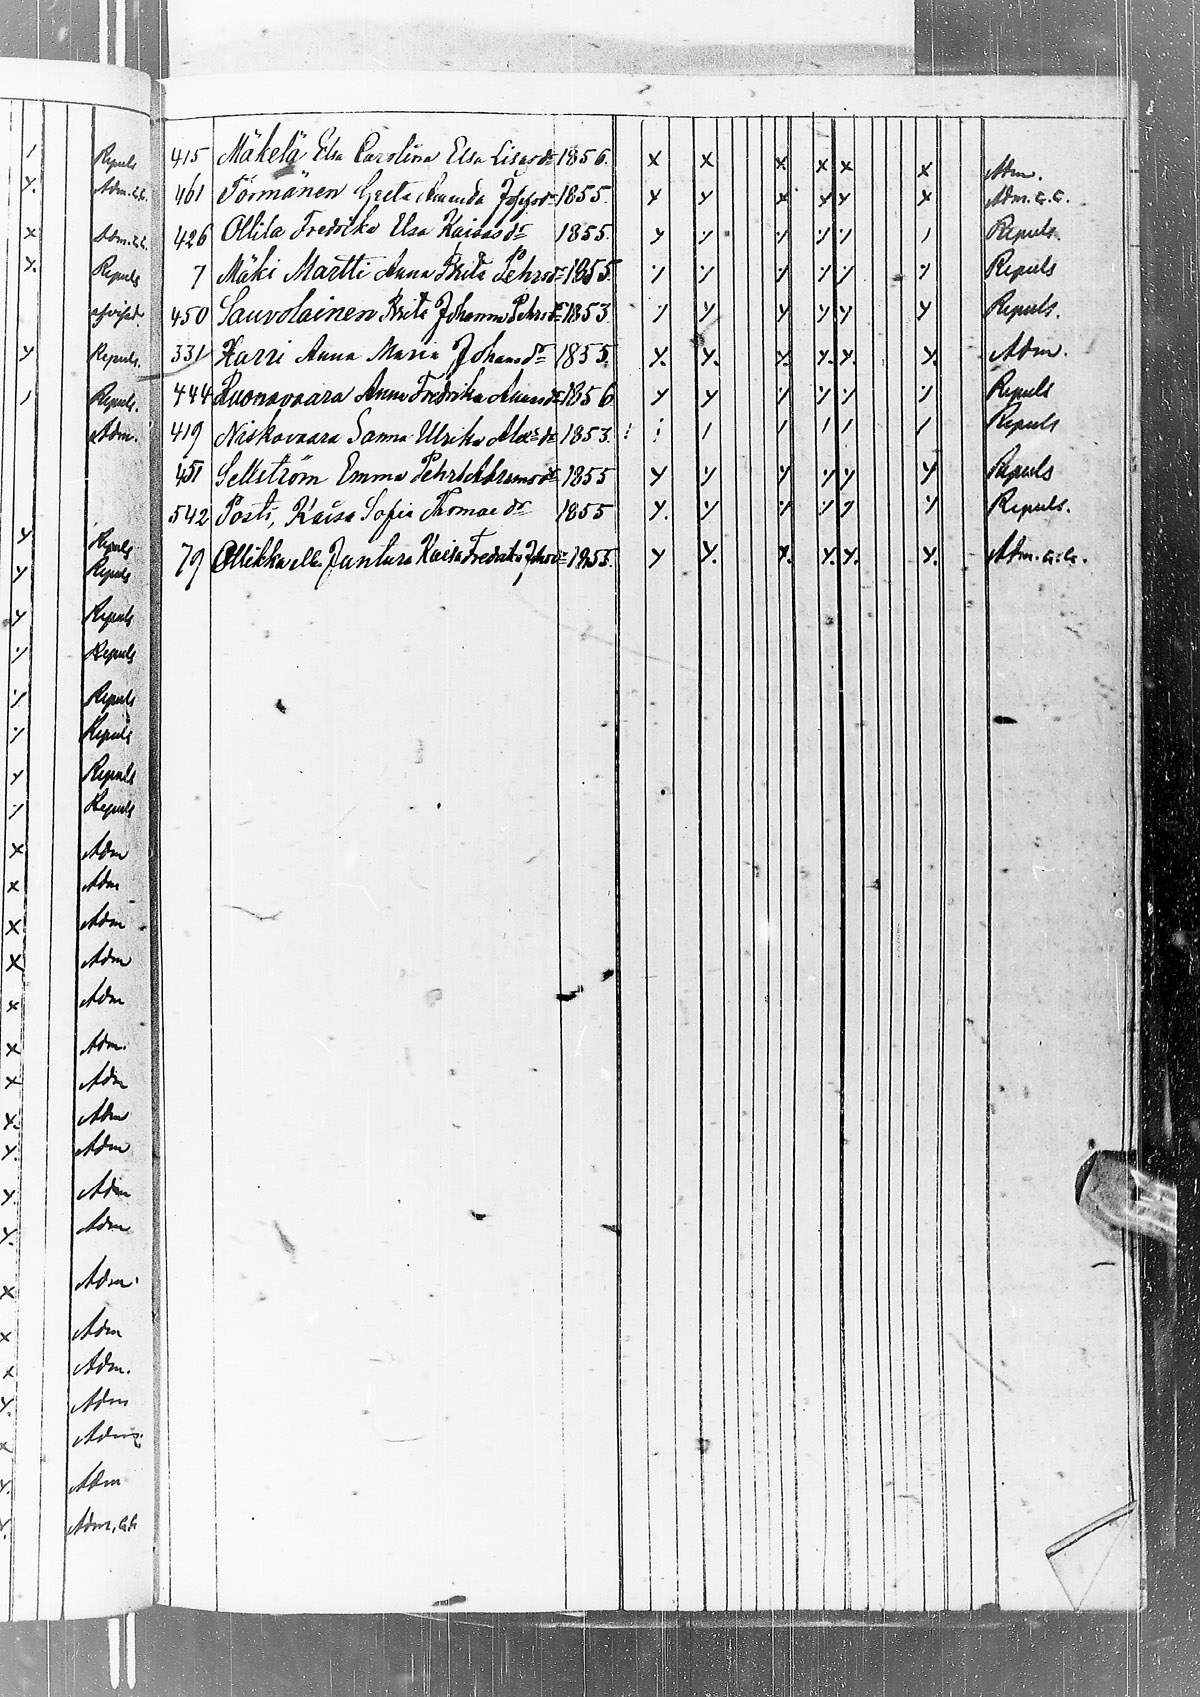 / Repuls
Y. Adm.C.C.
x Adm.C.C.
Y. Repuls
afvisad
Y Repuls.
/ Repuls.
Adm.
Y Repuls
Y Repuls
Y Repuls
·/ Repuls
·/ Repuls
·/ Repuls
Y Repuls
·/ Repuls
x Adm
x Adm
x Adm
x Adm
x Adm
x Adm.
x Adm
Y. Adm
Y. Adm
Y. Adm
Y. Adm
x Adm.
x Adm
x Adm.
Y. Adm
x
Y. Adm
Y. Adm. C.C.
415 Mäkelä Elsa Carolina Elsa Lisasdr 1856. x x x x x x Adm.
461 Törmänen Greta Amanda Josefsdr 1855. Y Y x Y Y x Adm. C.C.
426 Ollila Fredrika Elsa Kaisasdr 1855. Y ·/ ·/ ·/ ·/ / Repuls.
7 Mäki Martti Anna Brita Pehrsdr 1855 ·/ ·/ ·/ ·/ ·/ ·/ Repuls
450 Sauvolainen Brita Johanna Pehrsdr 1853 ·/ Y Y Y Y Y Repuls.
331 Harri Anna Maria Johansdr 1855. Y. Y. Y. Y. Y. Y. Adm.
444 Luonavaara Anna Fredrika Annasdr 1856 Y Y ·/ ·/ ·/ ·/ Repuls
419 Niskavaara Sanna Ulrika 1853. / / / / / Repuls
451 Sellström Emma 1855 Y ·/ Y ·/ ·/ Y Repuls
542 Posti, Kaisa Sofia Thomaedr 1855 Y. ·/ ·/ ·/ ·/ ·/ Repuls.
79 Ollikka ell. Juntura Kaisa Fredrika Johsdr 1855. Y Y. Y. Y. Y. Y. Adm. C.C.